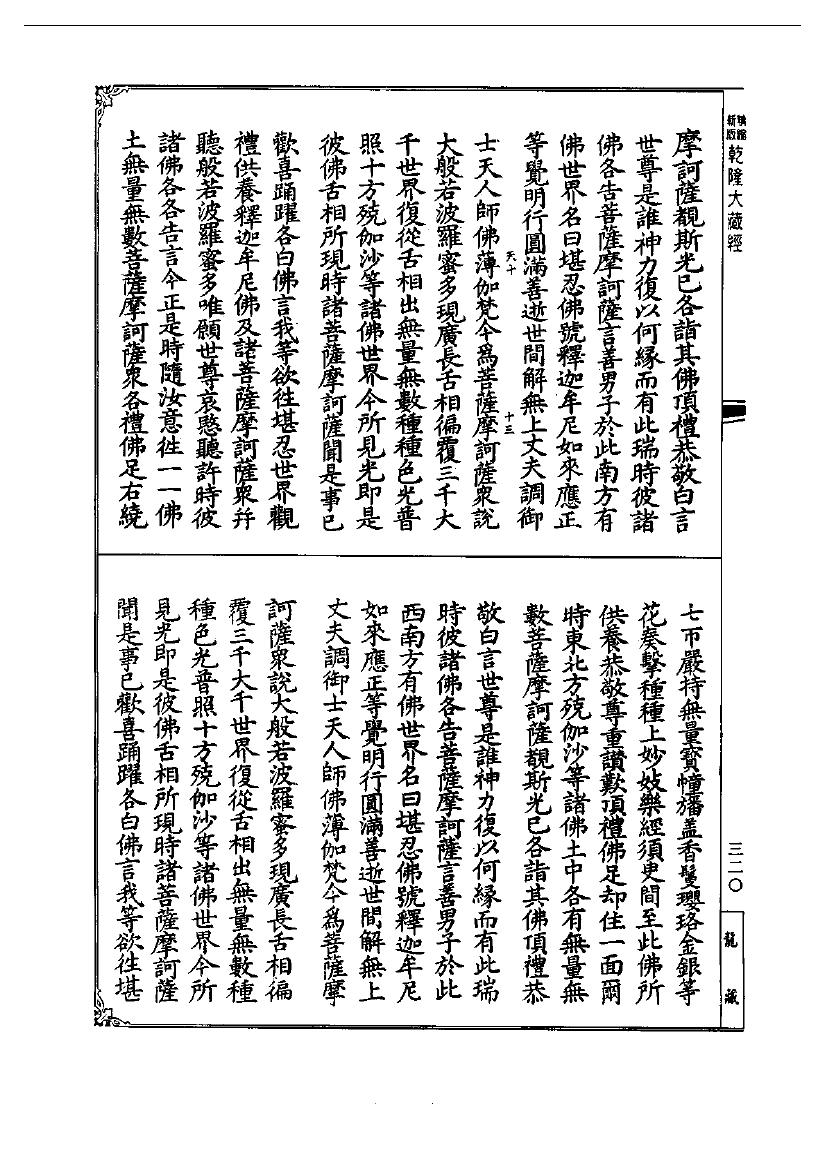 乾隆大藏經
摩訶薩覩斯光已各詣其佛頂禮恭敬白言
世尊是誰神力復以何緣而有此瑞時彼諸
佛各告菩薩摩訶薩言善男子於此南方有
佛世界名曰堪忍佛號釋迦牟尼如來應正
等覺明行圓滿善逝世間解無上丈夫調御
天十 十三
士天人師佛薄伽梵今爲菩薩摩訶薩衆說
大般若波羅蜜多現廣長舌相徧覆三千大
千世界復從舌相出無量無數種種色光普
照十方殑伽沙等諸佛世界今所見光即是
彼佛舌相所現時諸菩薩摩訶薩聞是事已
歡喜踊躍各白佛言我等欲往堪忍世界觀
禮供養釋迦牟尼佛及諸菩薩摩訶薩衆幷
聽般若波羅蜜多唯願世尊哀愍聽許時彼
諸佛各各告言今正是時隨汝意往一一佛
土無量無數菩薩摩訶薩衆各禮佛足右繞
三二〇
龍藏
七帀嚴持無量寶幢旛蓋香鬘瓔珞金銀等
花奏擊種種上妙妓樂經須臾間至此佛所
供養恭敬尊重讚歎頂禮佛足却住一面爾
時東北方殑伽沙等諸佛土中各有無量無
數菩薩摩訶薩覩斯光已各詣其佛頂禮恭
敬白言世尊是誰神力復以何緣而有此瑞
時彼諸佛各告菩薩摩訶薩言善男子於此
西南方有佛世界名曰堪忍佛號釋迦牟尼
如來應正等覺明行圓滿善逝世間解無上
丈夫調御士天人師佛薄伽梵今爲菩薩摩
訶薩衆說大般若波羅蜜多現廣長舌相徧
覆三千大千世界復從舌相出無量無數種
種色光普照十方殑伽沙等諸佛世界今所
見光即是彼佛舌相所現時諸菩薩摩訶薩
聞是事已歡喜踊躍各白佛言我等欲往堪